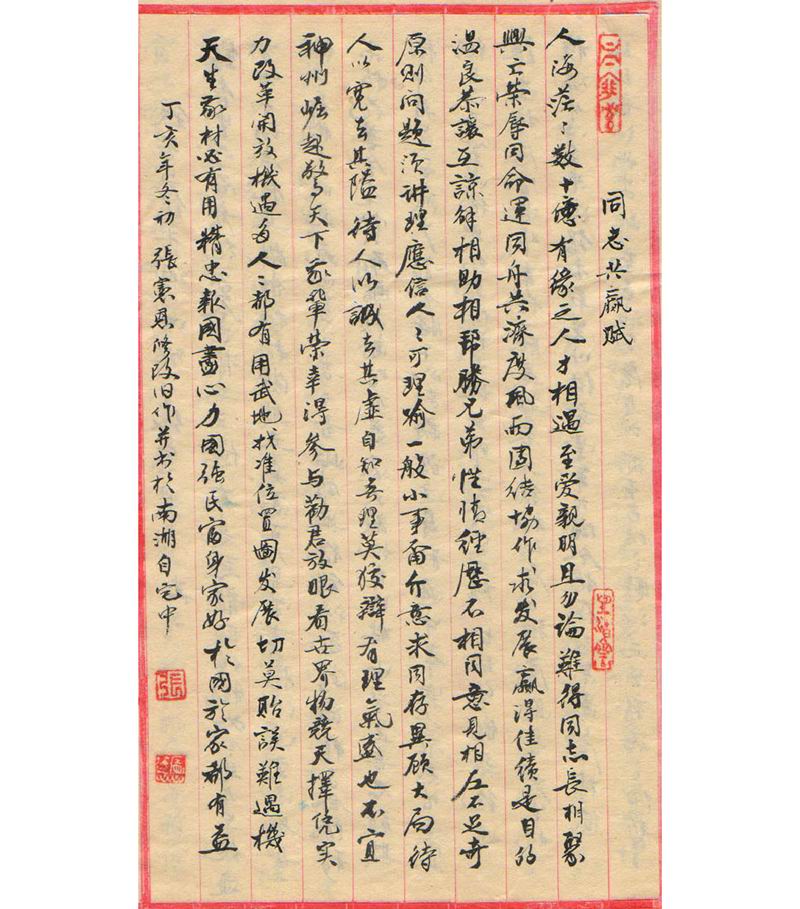 同志共赢赋
人海茫〻数十億有緣之人才相遇至爱親朋且勿論難得同志長相聚
興亡荣辱同命運同舟共濟度风雨团结協作求发展赢得佳绩是目的
温良恭讓互諒解相助相帮勝兄弟性情經歷不相同意見相左不足奇
原则问题须讲理應信人〻可理喻一般小事甭介意求同存異顾大局待
人以寬去其隘待人以誠去其虚自知無理莫狡辯有理氣盛也不宜
神州崛起驚天下我輩荣幸得参与勸君放眼看世界物競天擇凭实
力改革開放機遇多人〻都有用武地找准位置圖发展切莫贻誤難遇機
天生我材必有用精忠報國盡心力国强民富身家好於國於家都有益
丁亥年冬初 張憲 修改旧作并书於南湖自宅中
張